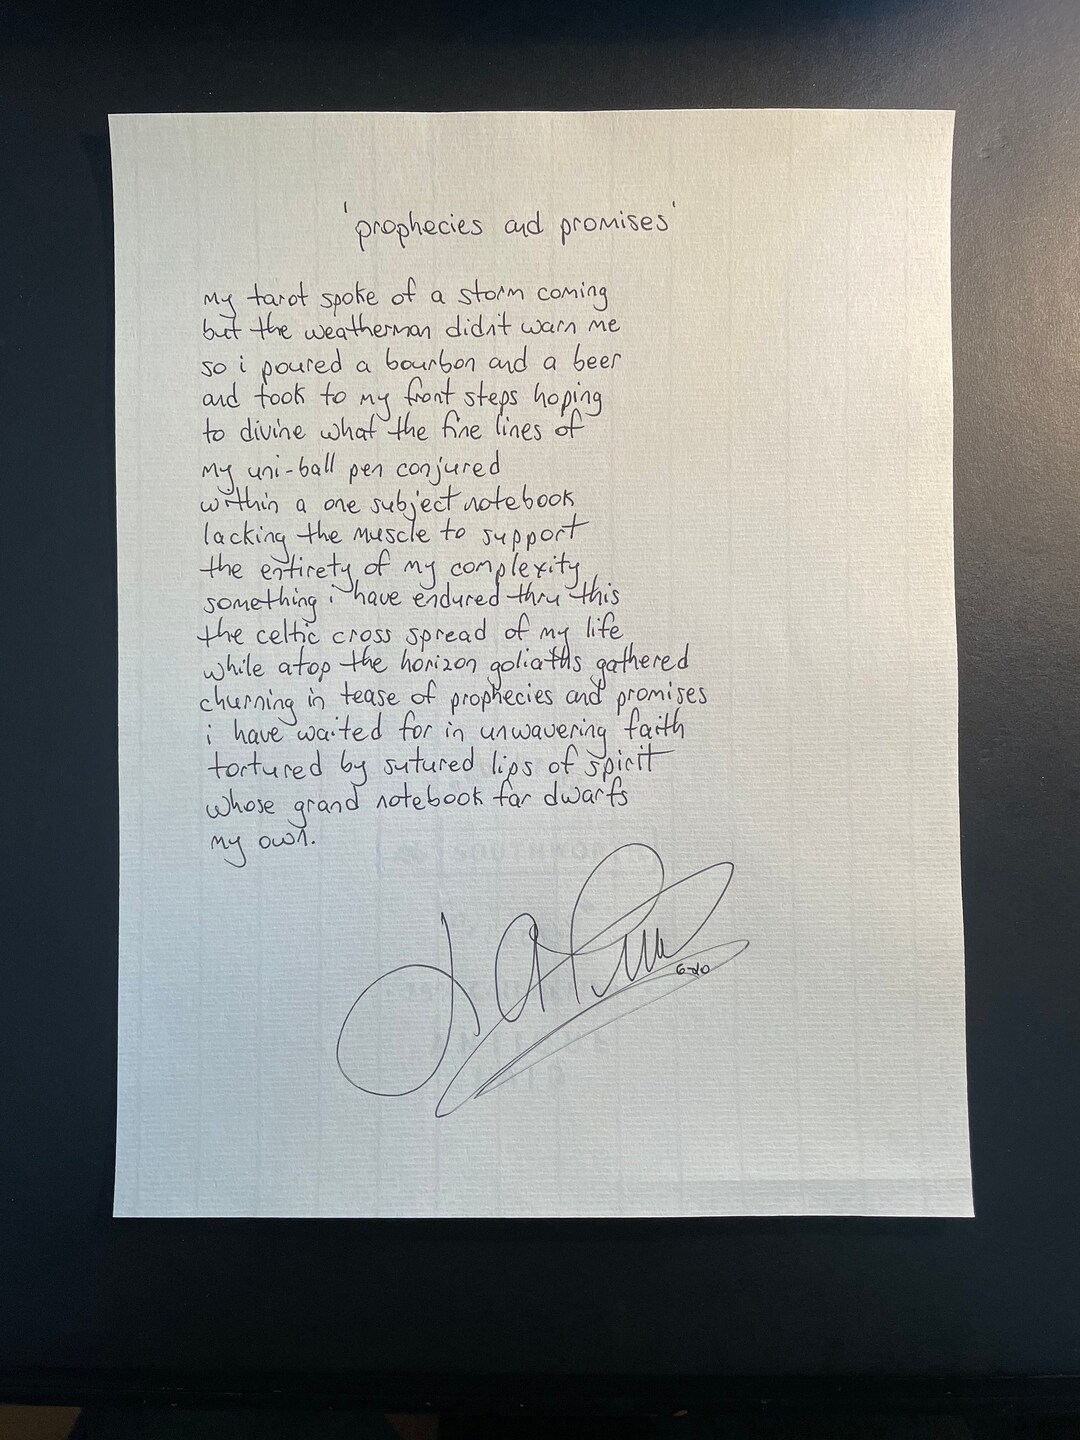 'prophecies and promises'
my tarot spoke of a storm coming
but the weatherman didn't warn me
so i poured a bourbon and a beer
and took to my front steps hoping
to divine what the fine lines of
my uni-ball pen conjured
within a one subject notebook
lacking the muscle to support
the entirety of my complexity
something i have endured thru this
the celtic cross spread of my life
while atop the horizon goliaths gathered
churning in tease of prophecies and promises
i have waited for in unwavering faith
tortured by sutured lips of spirit
whose grand notebook far dwarfs
my own.